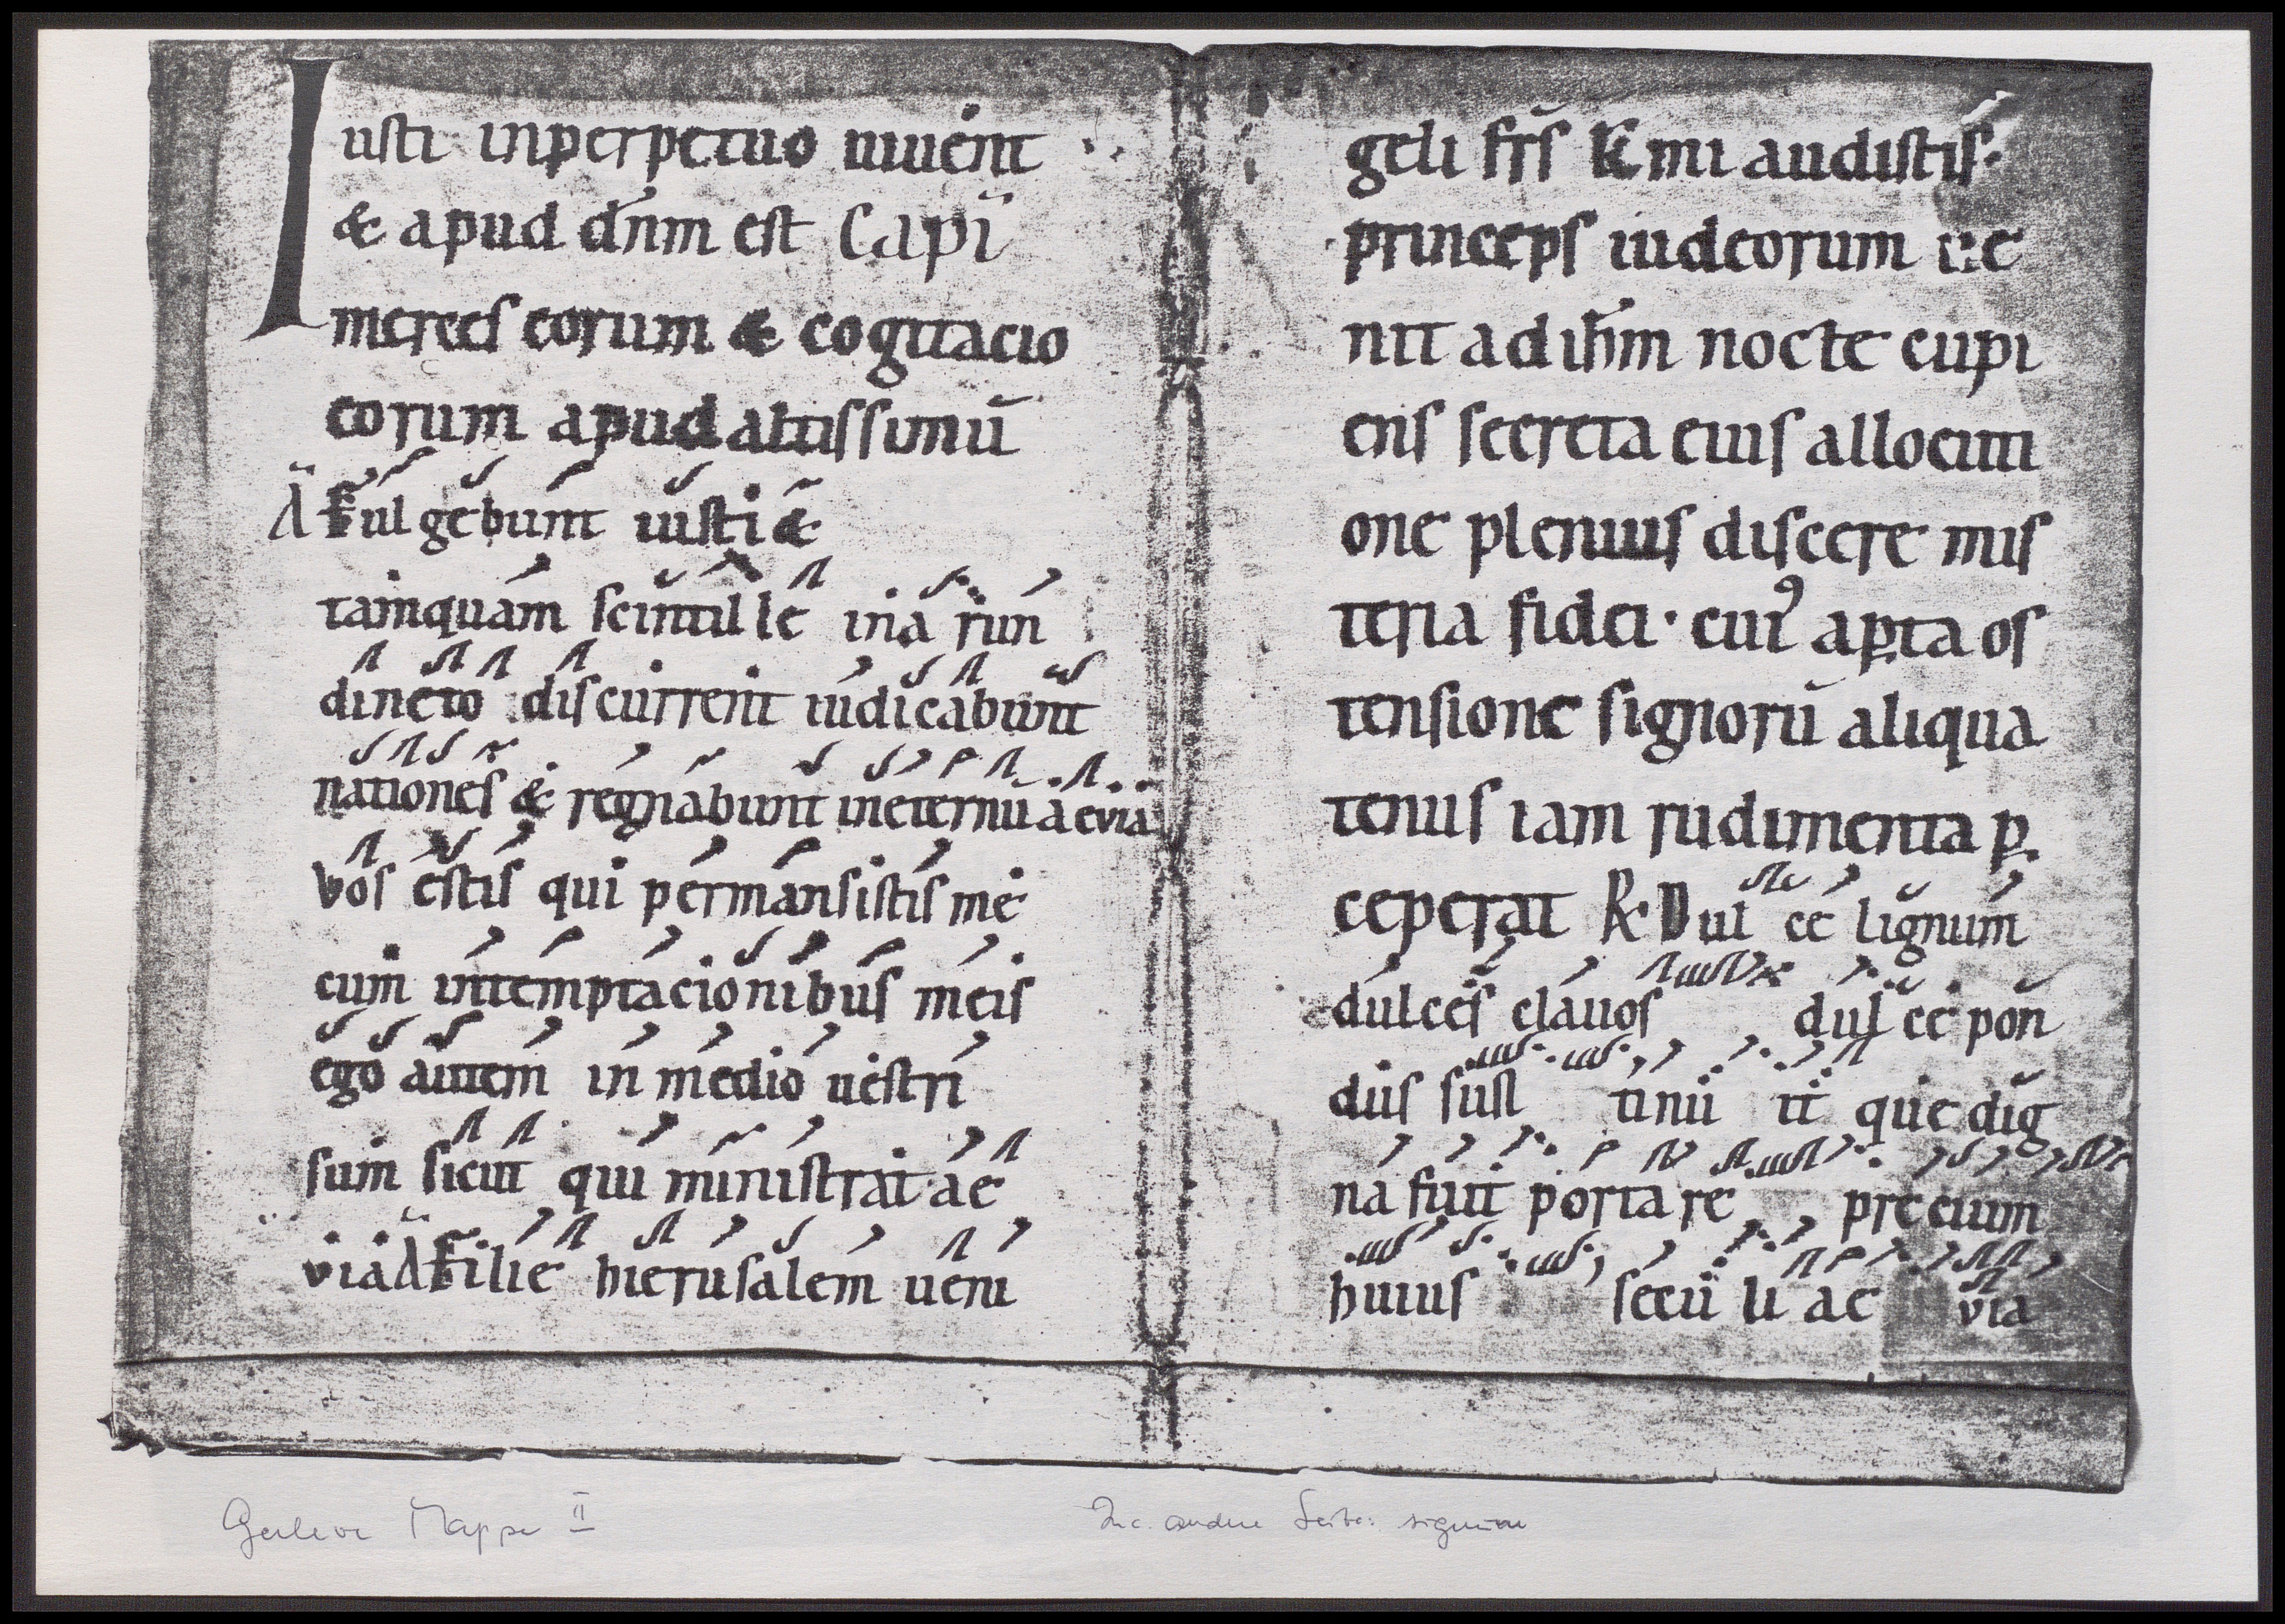 Iusti inperpetuo uiuent
& apud dn̄m est Capi
merces eorum & cogitacio
eorum apud altissimū
A Fulgebunt iusti &
tamquam scintille in arun
dineto discurrent iudicabunt
nationes & regnabunt ineternū aevia
vos estis qui permansistis me
cum intemptacionibus meis
ego autem in medio uestri
sum sicut qui ministrat ae
via A Filie hierusalem ueni
geli fr̄s kmi audistis·
princeps iudeorum ue
nit ad ih̄m nocte cupi
ens secreta eius allocuti
one plenius discere mis
teria fidei· cuiꝰ aꝑta os
tensione signorū aliqua
tenus iam rudimenta ꝑ
ceperat ℟ Dul ce lignum
dulces clauos dul ce pon
dus sust tinu it que dig
na fuit porta re precium
huius secu li ae via
Gerleve Mappe II
andere Seite: signum